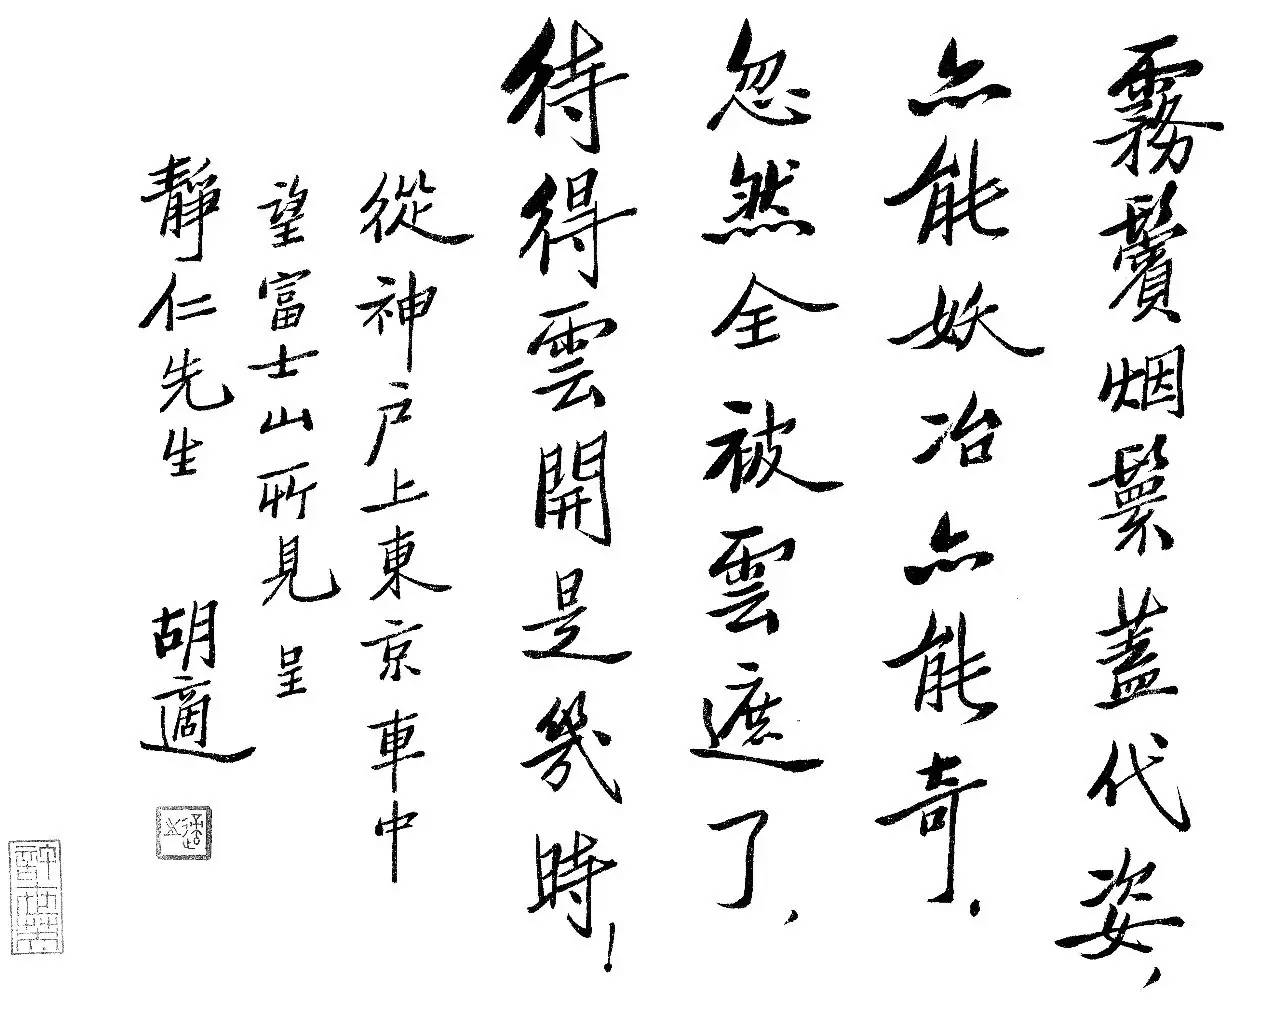 霧鬢烟鬟蓋代姿，
亦能妖冶亦能奇．
忽然全被雲遮了，
待得雲開是幾時！
從神户上東京車中
望富士山所見 呈
靜仁先生 胡適
適之